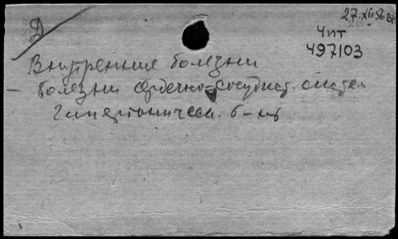 Д
27.XII.56
Чит
497103
Внутренние болезни
– болезни сердечно-сосудист. систем
Гипертоническ. б-нь